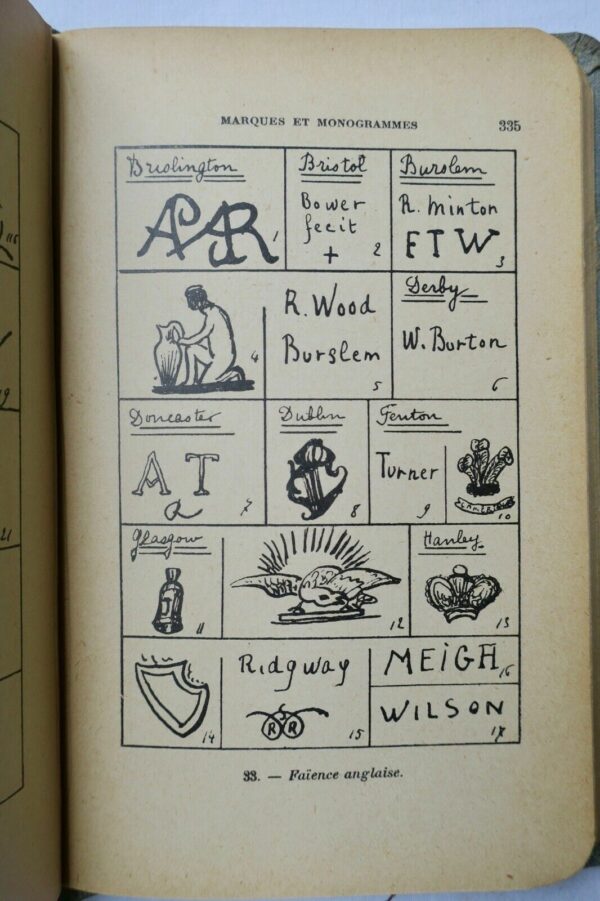 MARQUES ET MONOGRAMMES 335
Brislington
APAR 1
Bristol
Bower
fecit
+ 2
Burslem
R. Minton
FTW 3
4
R. Wood
Burslem
5
Derby
W. Burton
6
Doncaster
A T
7
Dublin
8
Fenton
Turner
9
10
Glasgow
11
12
Hanley
13
14
Ridgway
R R
15
MEIGH 16
WILSON
17
33. — Faïence anglaise.